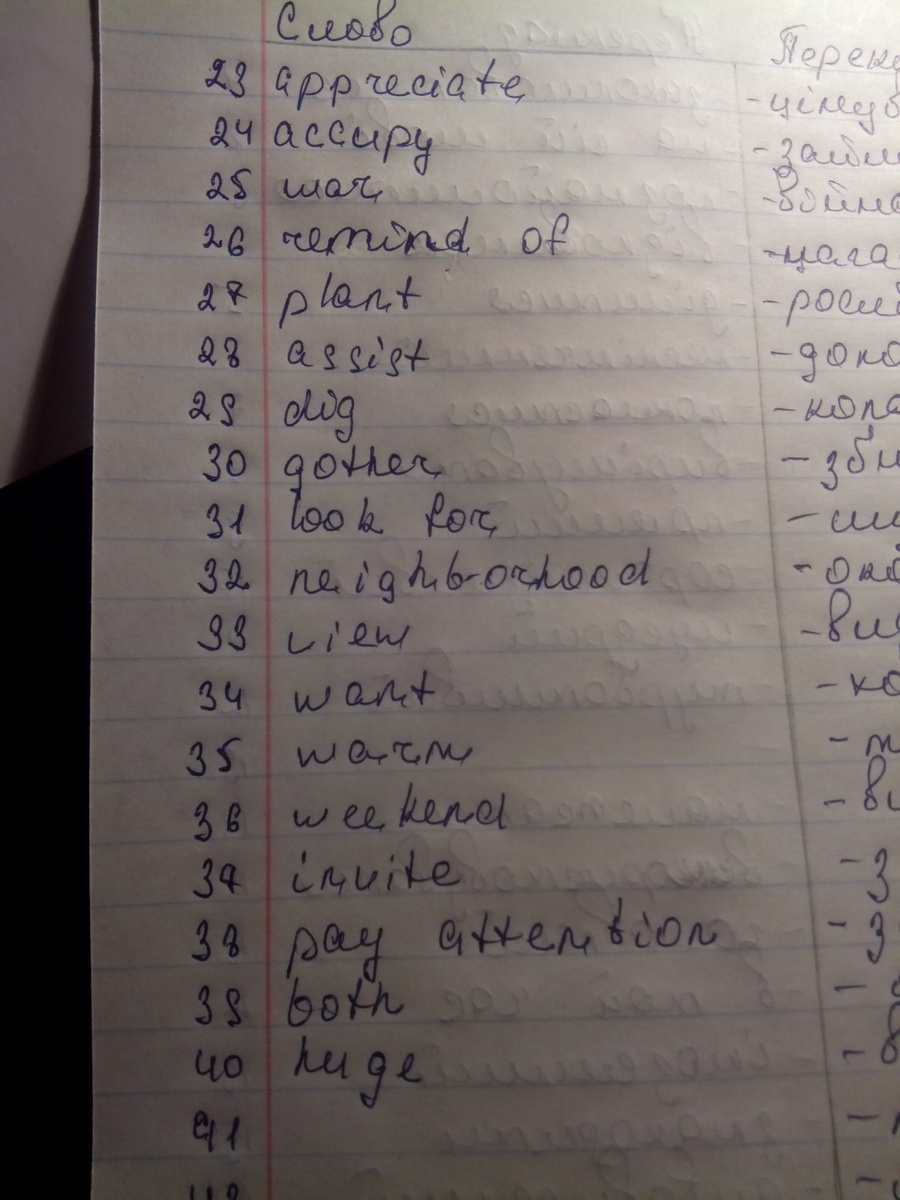 Слово Перек
23 appreciate - цінув
24 accupy - займ
25 war - війна
26 remind of - нага
27 plant - росли
28 assist - допо
29 dig - копа
30 gother - зби
31 look for - шу
32 neighborhood - око
33 view - вид
34 want
35 warm
36 weekend - ви
37 invite - з
38 pay attention - з
39 both
40 huge - в
41